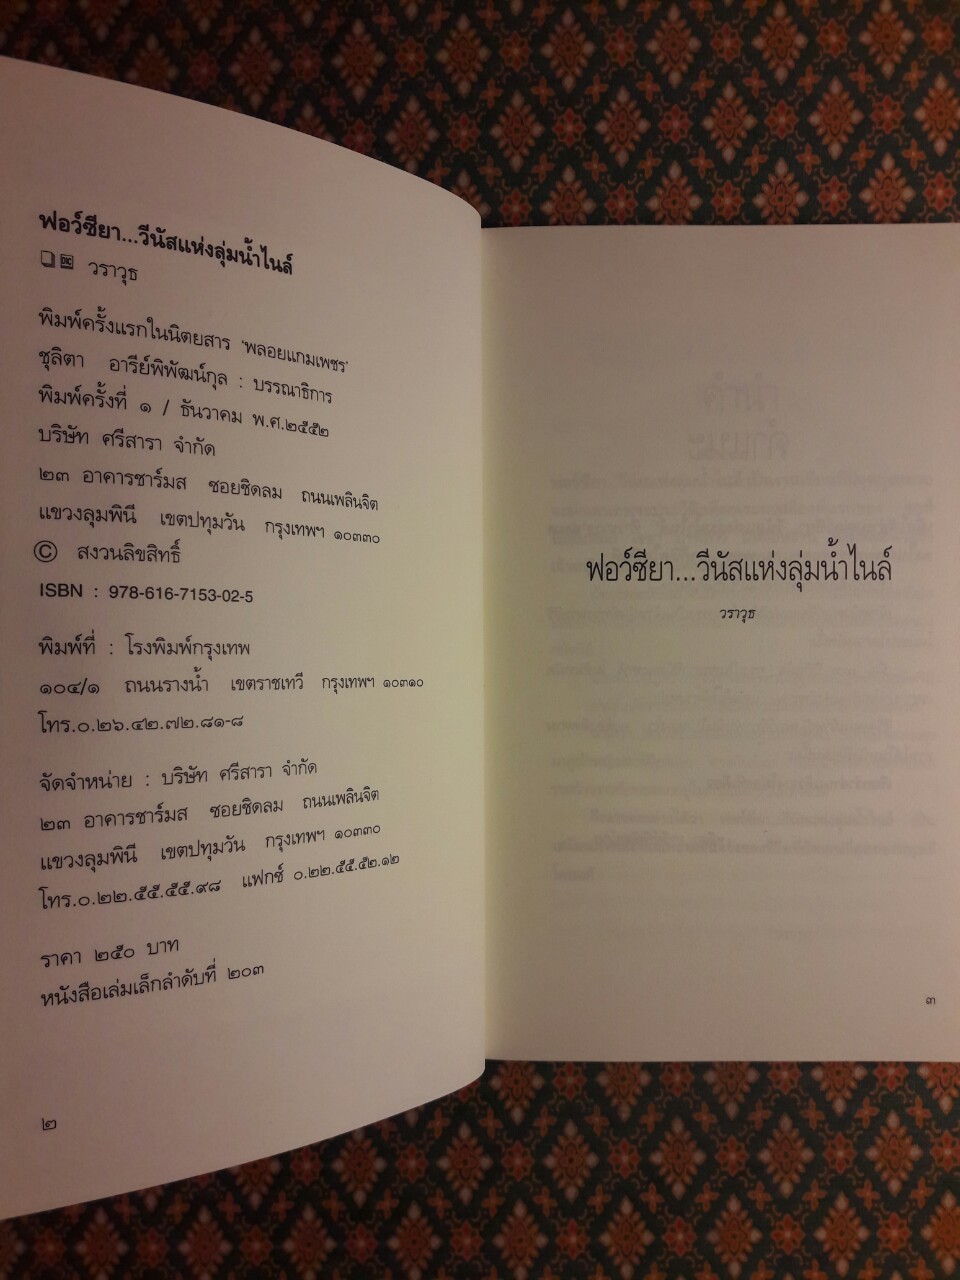 ฟอว์ซียา...วีนัสแห่งลุ่มน้ำไนล์
วราวุธ
พิมพ์ครั้งแรกในนิตยสาร 'พลอยแกมเพชร'
ชุลิตา อารีย์พิพัฒน์กุล : บรรณาธิการ
พิมพ์ครั้งที่ ๑ / ธันวาคม พ.ศ.๒๕๕๒
บริษัท ศรีสารา จำกัด
๒๓ อาคารชาร์มส ซอยชิดลม ถนนเพลินจิต
แขวงลุมพินี เขตปทุมวัน กรุงเทพฯ ๑๐๓๓๐
© สงวนลิขสิทธิ์
ISBN : 978-616-7153-02-5
พิมพ์ที่ : โรงพิมพ์กรุงเทพ
๑๐๔/๑ ถนนรางน้ำ เขตราชเทวี กรุงเทพฯ ๑๐๓๑๐
โทร.๐.๒๖.๔๒.๗๒.๘๑-๘
จัดจำหน่าย : บริษัท ศรีสารา จำกัด
๒๓ อาคารชาร์มส ซอยชิดลม ถนนเพลินจิต
แขวงลุมพินี เขตปทุมวัน กรุงเทพฯ ๑๐๓๓๐
โทร.๐.๒๒.๕๕.๕๕.๙๘ แฟกซ์ ๐.๒๒.๕๕.๕๒.๑๒
ราคา ๒๕๐ บาท
หนังสือเล่มเล็กลำดับที่ ๒๐๓
๒
ฟอว์ซียา...วีนัสแห่งลุ่มน้ำไนล์
วราวุธ
๓